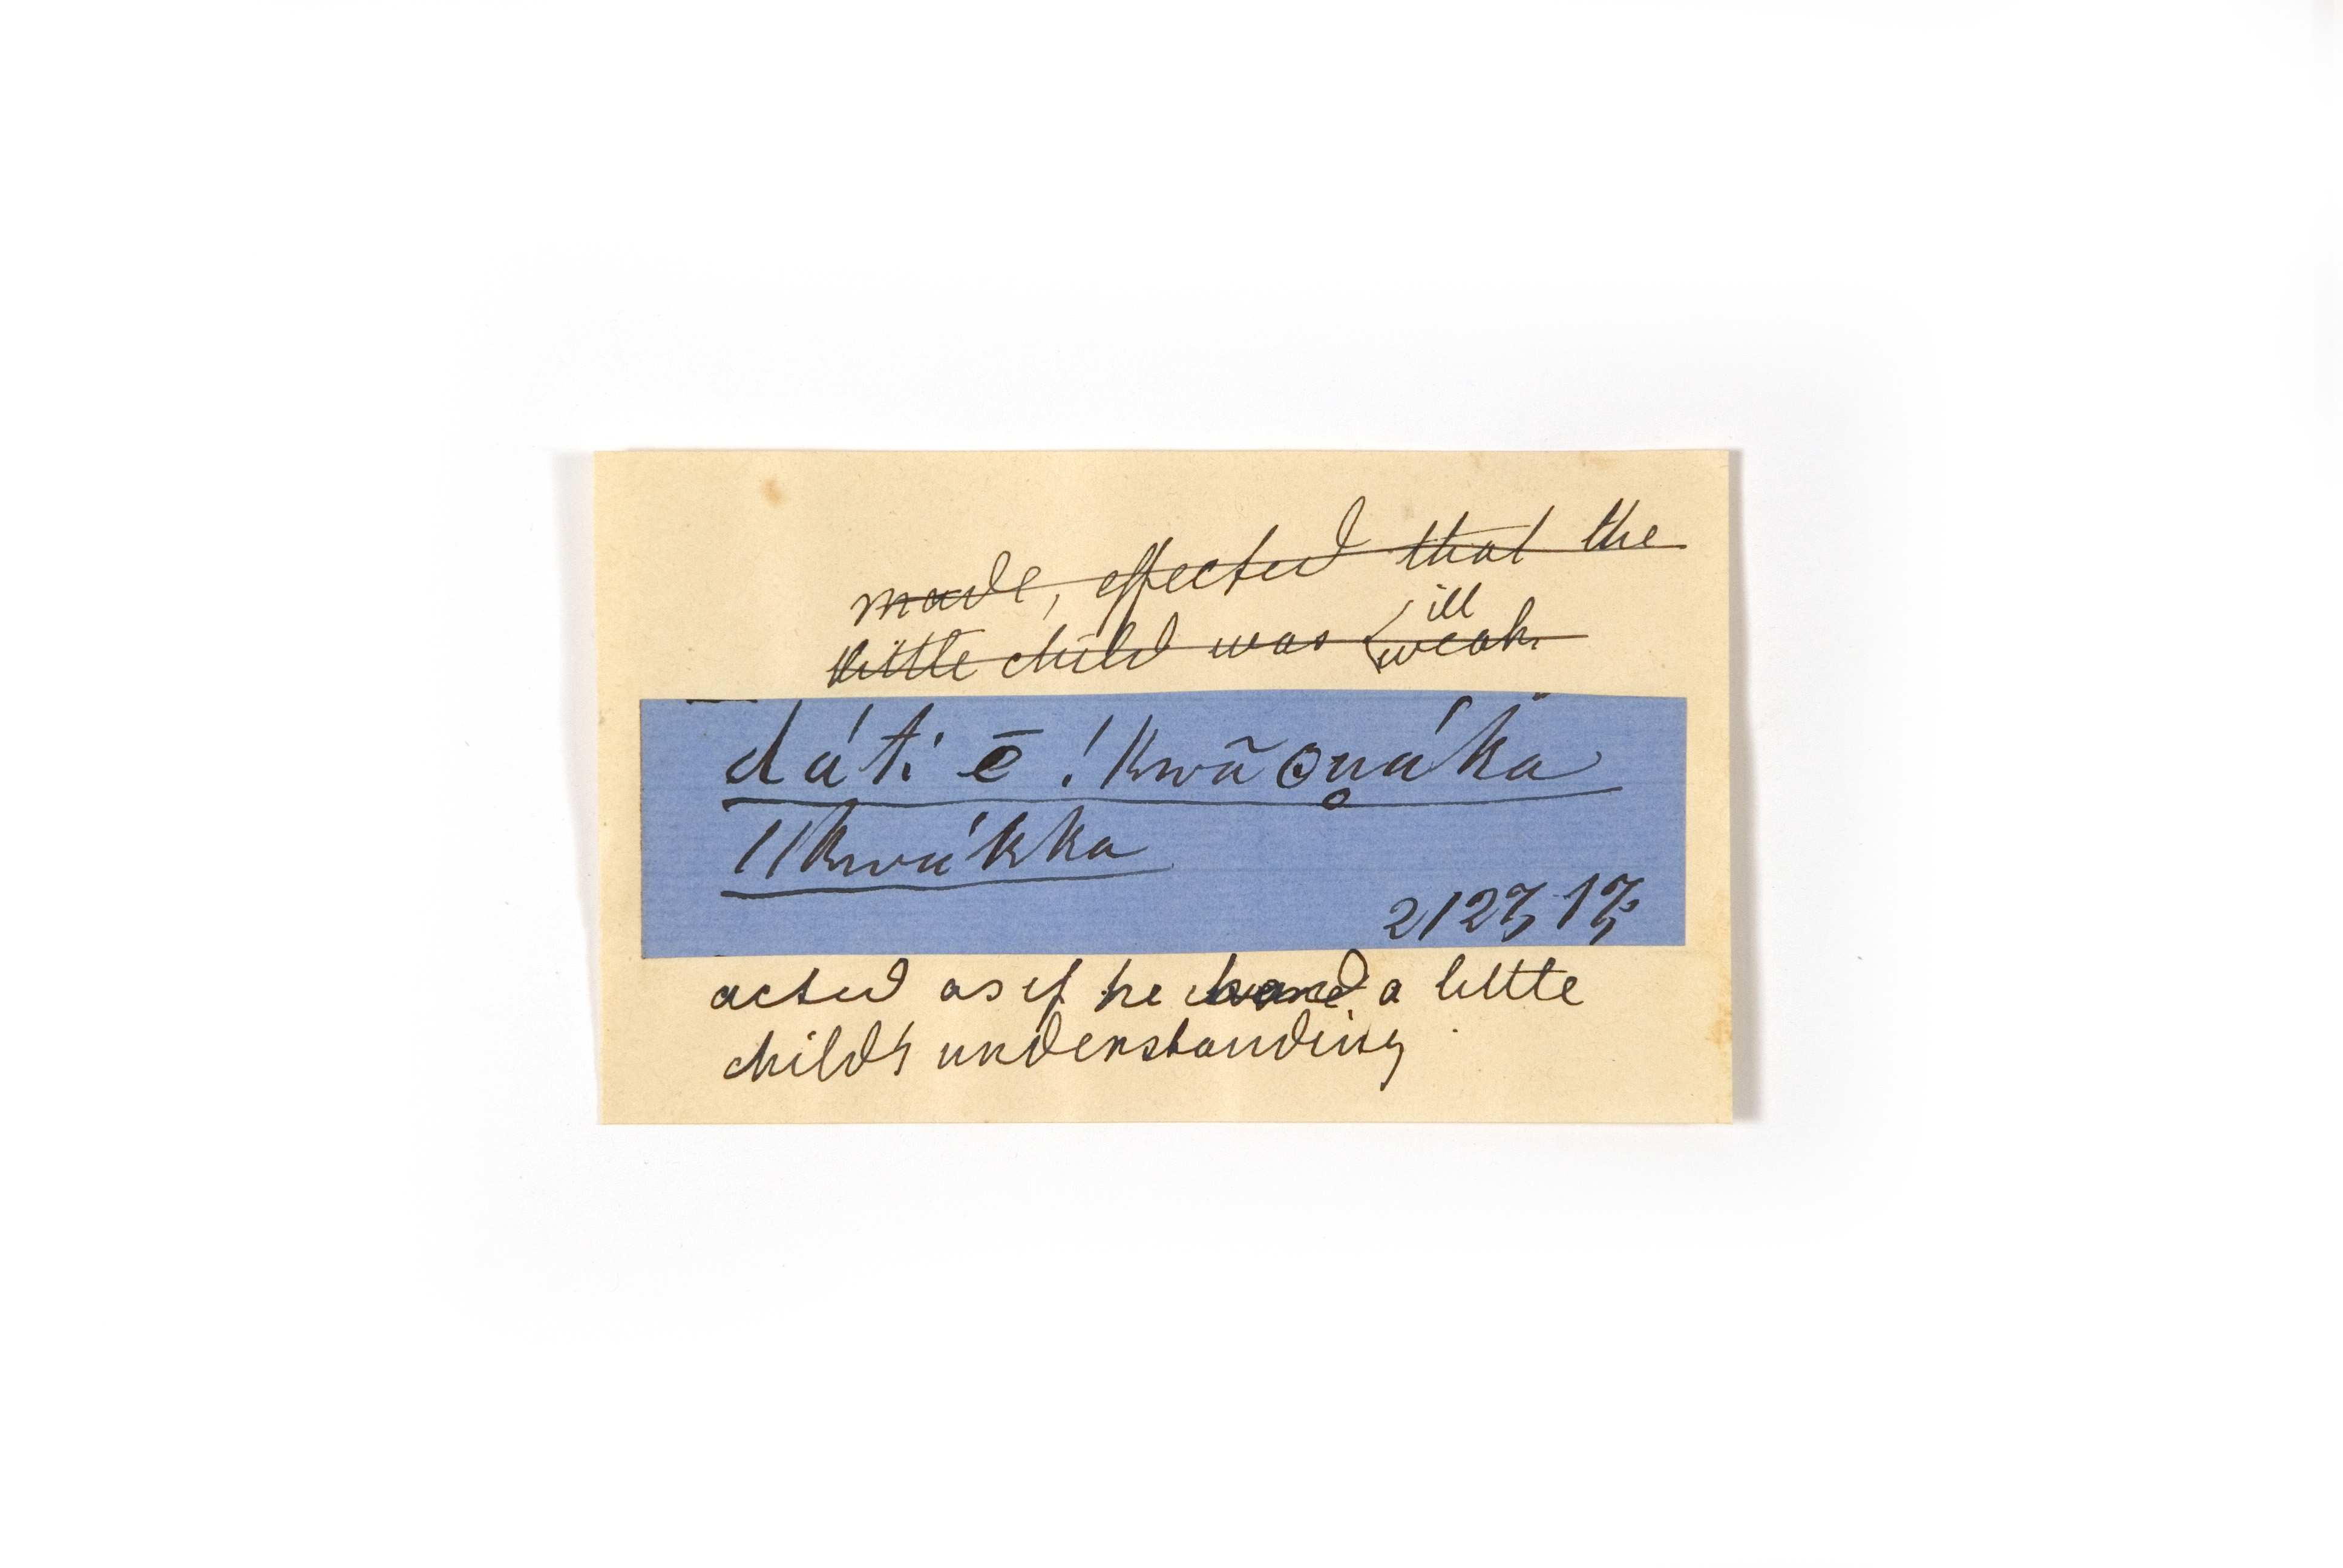 made, effected that the
ill
little child was (weak
dáti ē !kwãʘṷáka
ǁkwákka
2127, 17,
acted as if he had a little
child's understanding